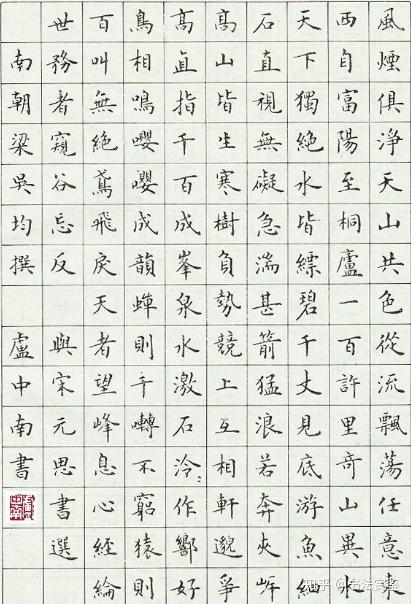 風煙俱淨天山共色從流飄蕩任意東
西自富陽至桐廬一百許里奇山異水
天下獨絕水皆縹碧千丈見底游魚細
石直視無礙急湍甚箭猛浪若奔夾岸
高山皆生寒樹負勢競上互相軒邈爭
高直指千百成峯泉水激石泠〻作響好
鳥相鳴嚶嚶成韻蟬則千囀不窮猿則
百叫無絕鳶飛戾天者望峰息心經綸
世務者窺谷忘反 與宋元思書選
南朝梁吳均撰 盧中南書
知乎